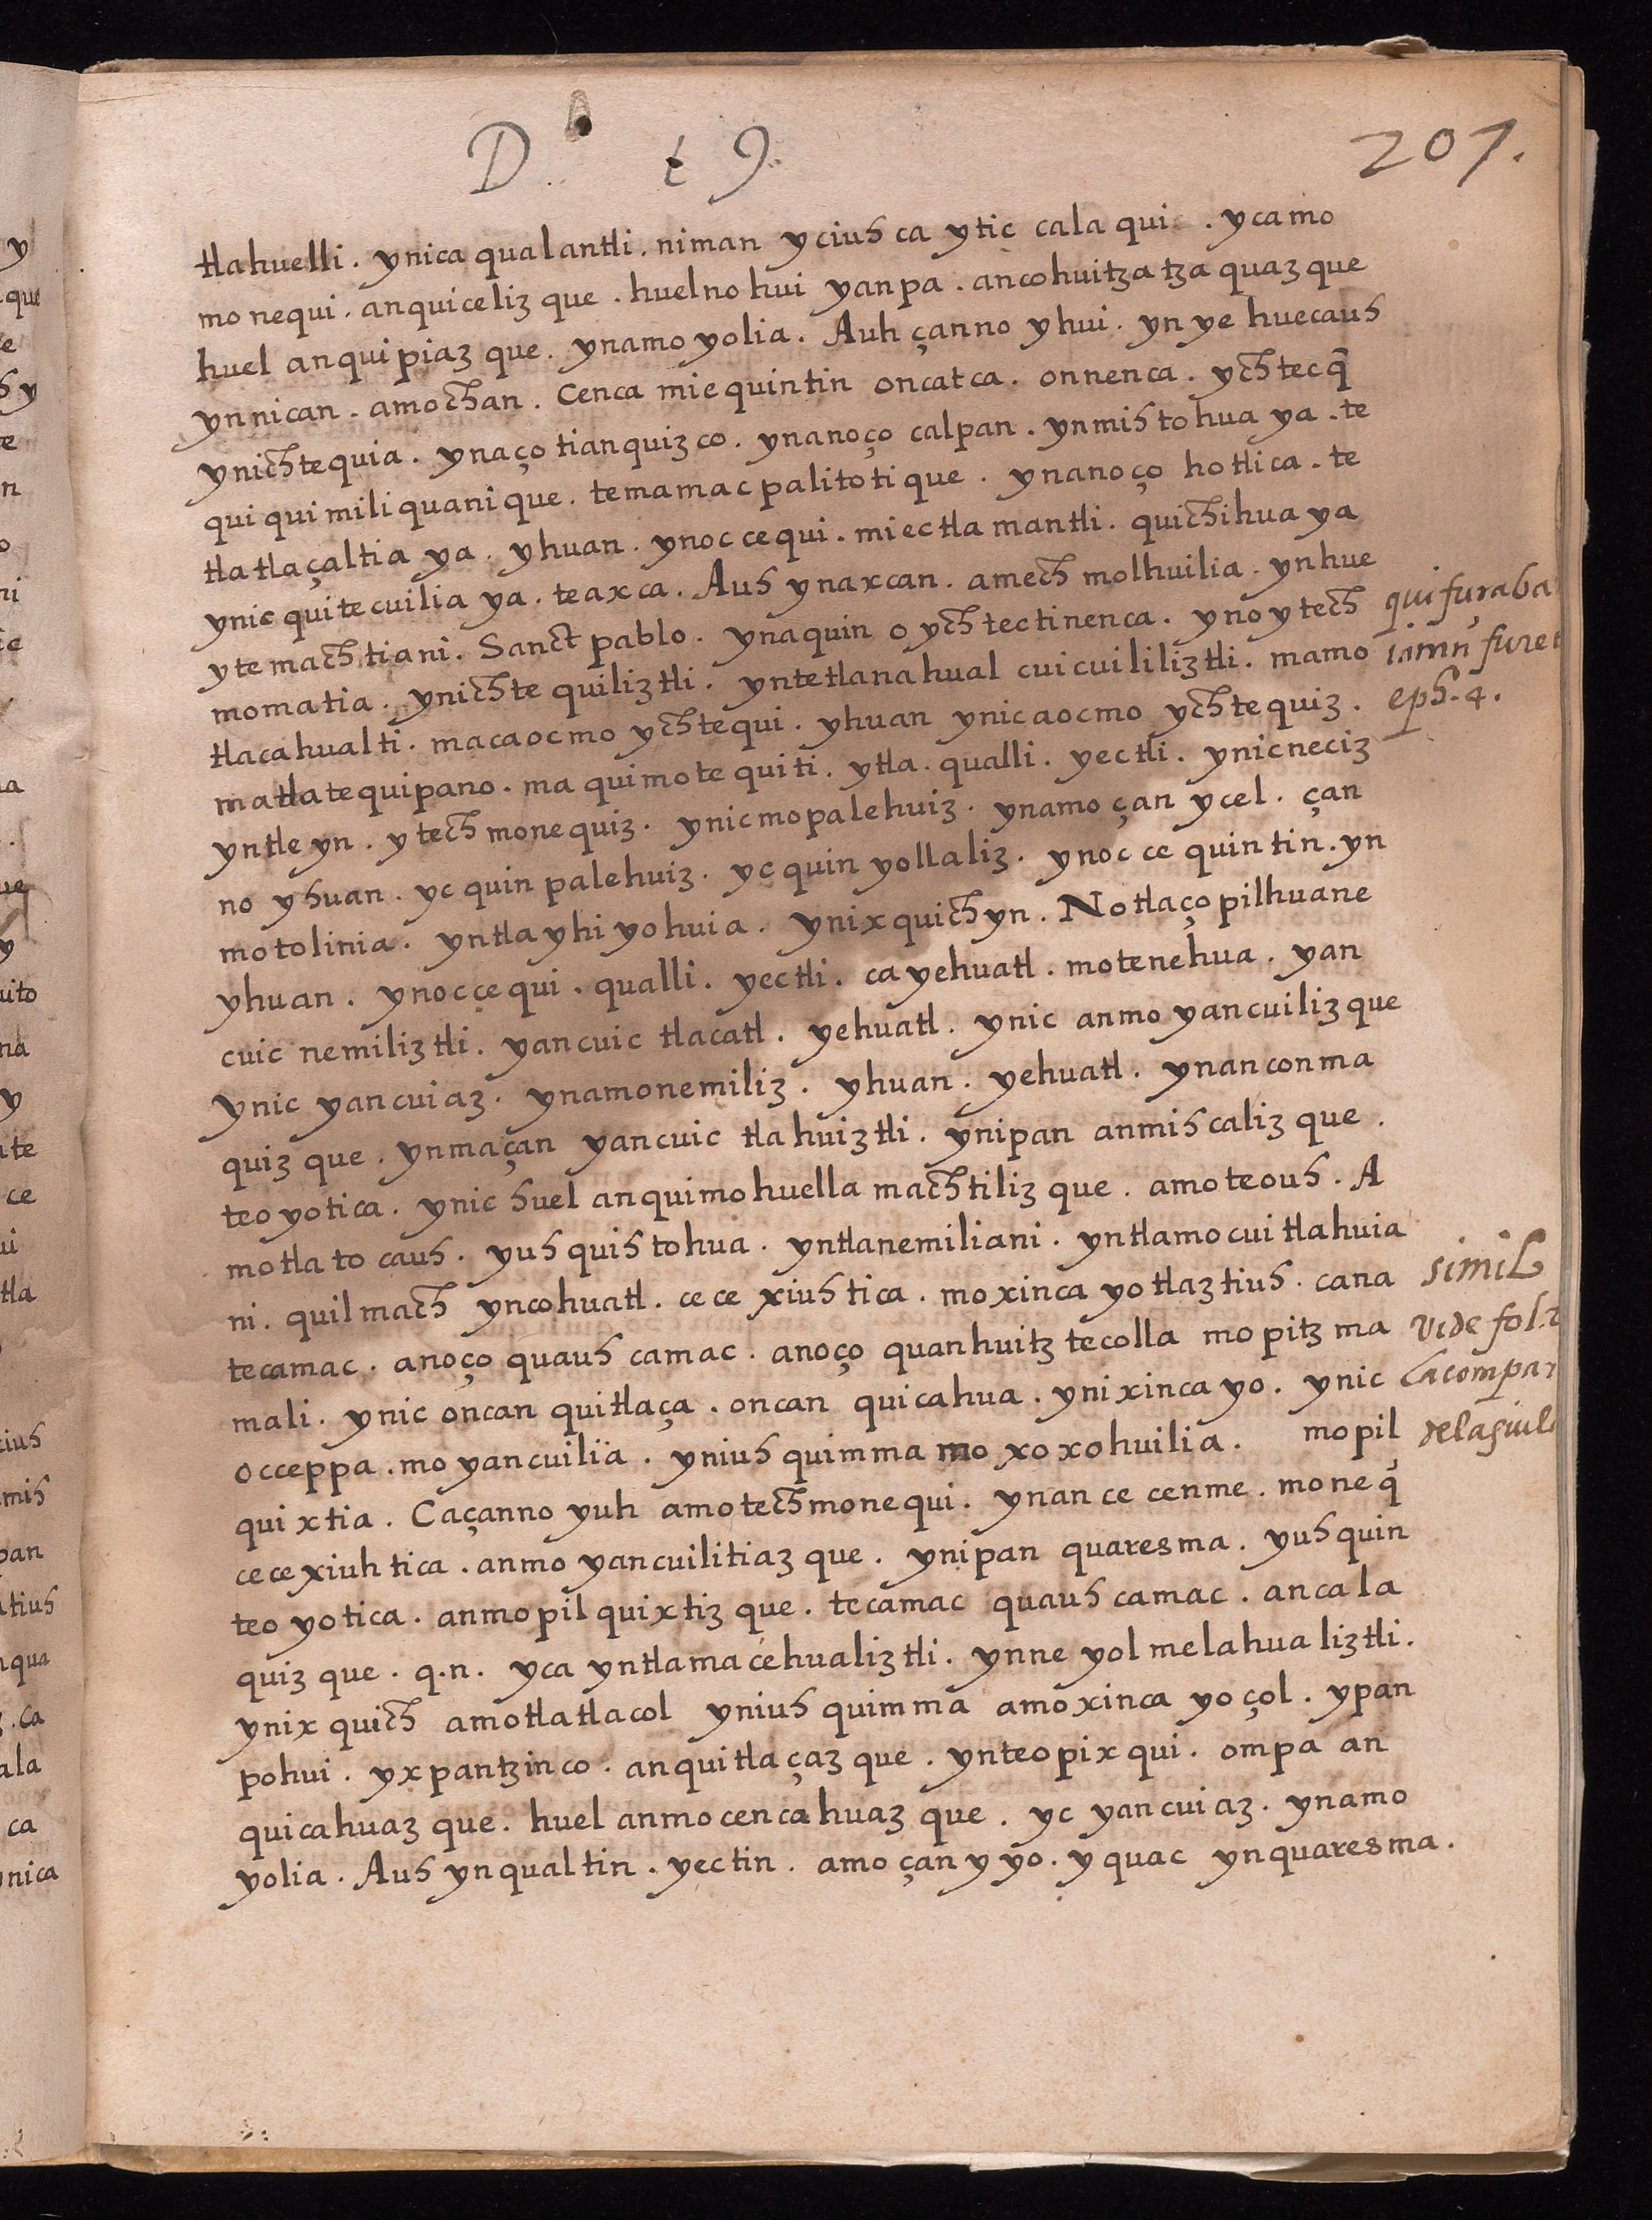 D. t 9.
207.
tlahuelli. ynica qualantli. niman yciuhca ytic calaqui. ycamo
monequi. anquicelizque. huel no hui yanpa. ancohuitzatzaquazque
huel anquipiazque. ynamoyolia. Auh çanno yhui. yn ye huecauh
ynnican. amochan. Cenca miequintin oncatca. onnenca. ychtecq̃
ynichtequia. ynaço tianquizco. ynanoço calpan. ynmihtohuaya. te
quiquimiliquanique. temamacpalitotique. ynanoço hotlica. te
tlatlaçaltiaya. yhuan. ynoccequi. miectlamantli. quichihuaya
ynic quitecuiliaya. teaxca. Auh ynaxcan. amechmolhuilia. ynhue
ytemachtiani. Sanct pablo. ynaquin oychtectinenca. ynoytech
momatia. ynichtequiliztli. yntetlanahualcuicuililiztli. mamo
tlacahualti. macaocmo ychtequi. yhuan ynicaocmo ychtequiz.
matlatequipano. ma quimotequiti. ytla. qualli. yectli. ynicneciz
yntleyn. ytechmonequiz. ynicmopalehuiz. ynamo çan ycel. çan
no yhuan. yc quinpalehuiz. yc quinyollaliz. ynoccequintin. yn
motolinia. yntlayhiyohuia. ynixquichyn. Notlaçopilhuane
yhuan. ynoccequi. qualli. yectli. cayehuatl. motenehua. yan
cuic nemiliztli. yancuic tlacatl. yehuatl. ynic anmoyancuilizque
ynic yancuiaz. ynamonemiliz. yhuan. yehuatl. ynanconma
quizque. ynmaçan yancuic tlahuiztli. ynipan anmihcalizque.
teoyotica. ynic huel anquimohuellamachtilizque. amoteouh. A
motlatocauh. yuhquihtohua. yntlanemiliani. yntlamocuitlahuia
ni. quilmach yncohuatl. cecexiuhtica. moxincayotlaztiuh. cana
tecamac. anoço quauhcamac. anoço quanhuitztecolla mopitzma
mali. ynic oncan quitlaça. oncan quicahua. ynixincayo. ynic
occeppa. moyancuilia. yniuhquimma moxoxohuilia. mopil
quixtia. Caçanno yuh amotechmonequi. ynancecenme. moneq̃
cecexiuhtica. anmoyancuilitiazque. ynipan quaresma. yuhquin
teoyotica. anmopilquixtizque. tecamac quauhcamac. ancala
quizque. q.n. yca yntlamacehualiztli. ynneyolmelahualiztli.
ynixquich amotlatlacol yniuhquimma amoxincayoçol. ypan
pohui. yxpantzinco. anquitlaçazque. ynteopixqui. ompa an
quicahuazque. huel anmocencahuazque. yc yancuiaz. ynamo
yolia. Auh ynqualtin. yectin. amo çan yyo. yquac ynquaresma.
qui furaba
iamn̄ furet
eph. 4.
simil
vide fol.
la compar